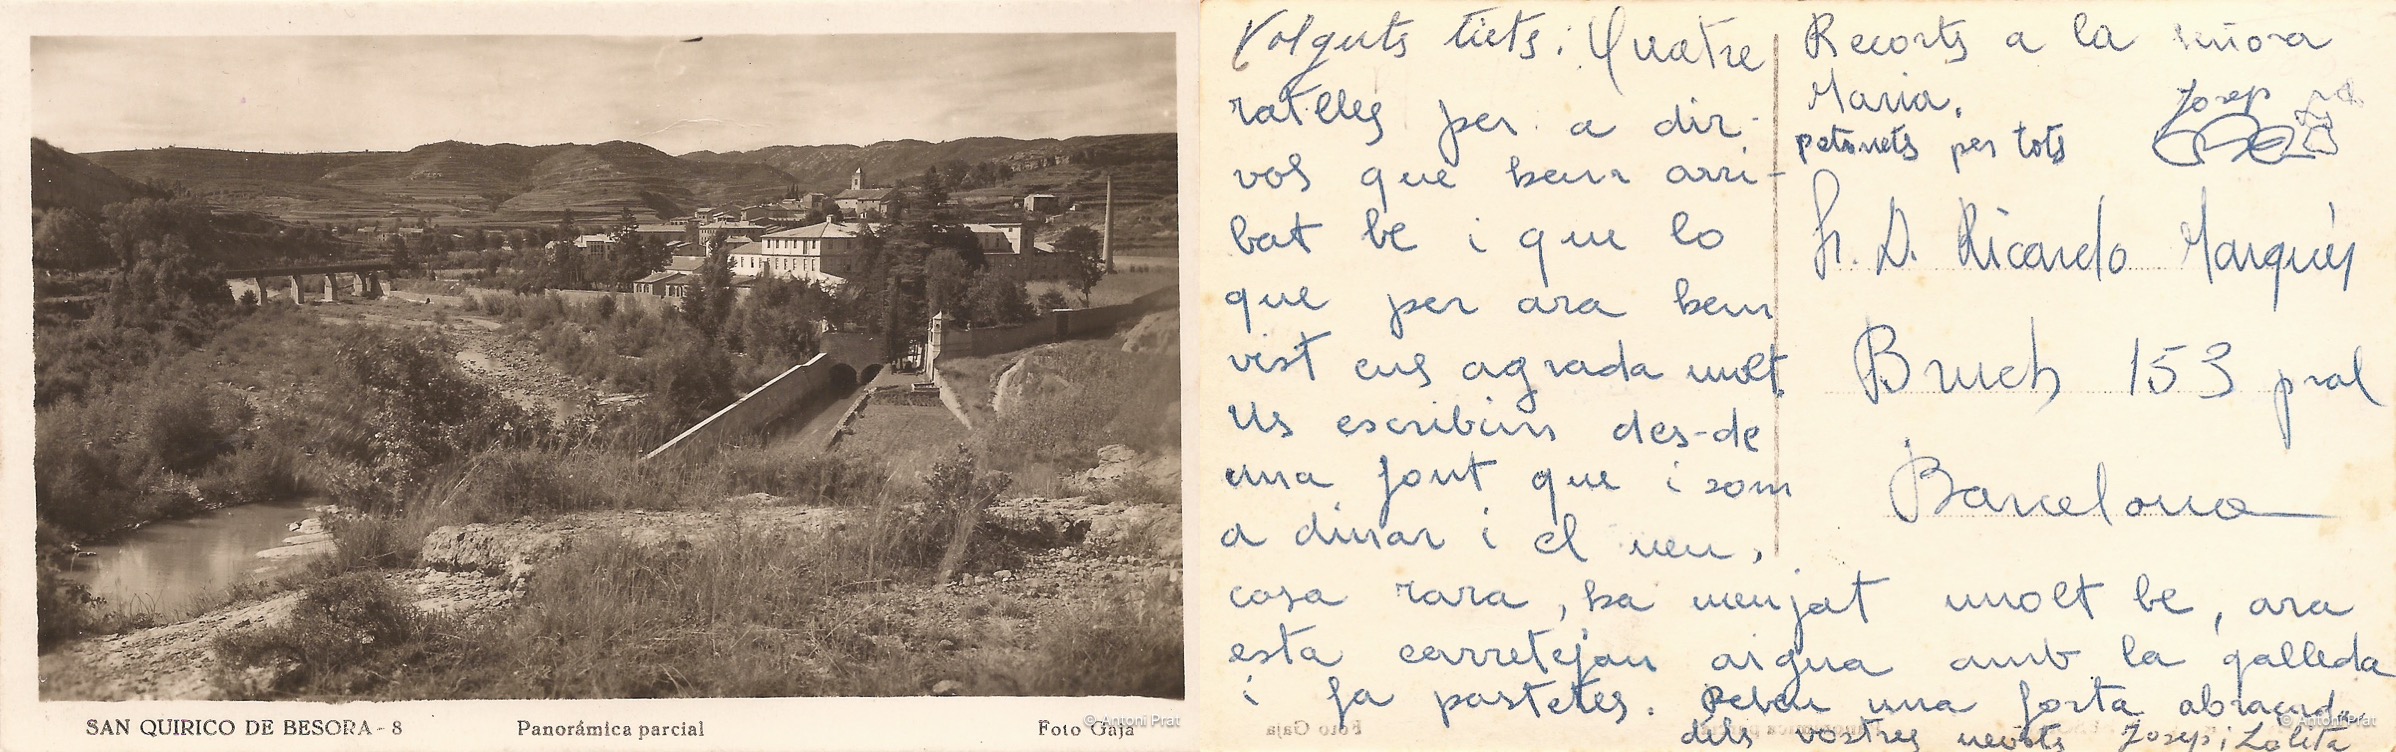 SAN QUIRICO DE BESORA - 8
Panorámica parcial
Foto Gaja
© Antoni Prat
Volguts tiets: Quatre
ratlles per a dir-
vos que hem arri-
bat be i que lo
que per ara hem
vist ens agrada molt.
Us escribim des-de
una font que i som
a dinar i el neu,
cosa rara, ha menjat molt be, ara
esta carretejan aigua amb la galleda
i fa pastetes. Rebeu una forta abraçada
dels vostres nevots Josep i Lolita
Recorts a la señora
Maria.
petonets per tots
Josep
Sr. D. Ricardo Marqués
Bruch 153 pral
Barcelona
© Antoni Prat